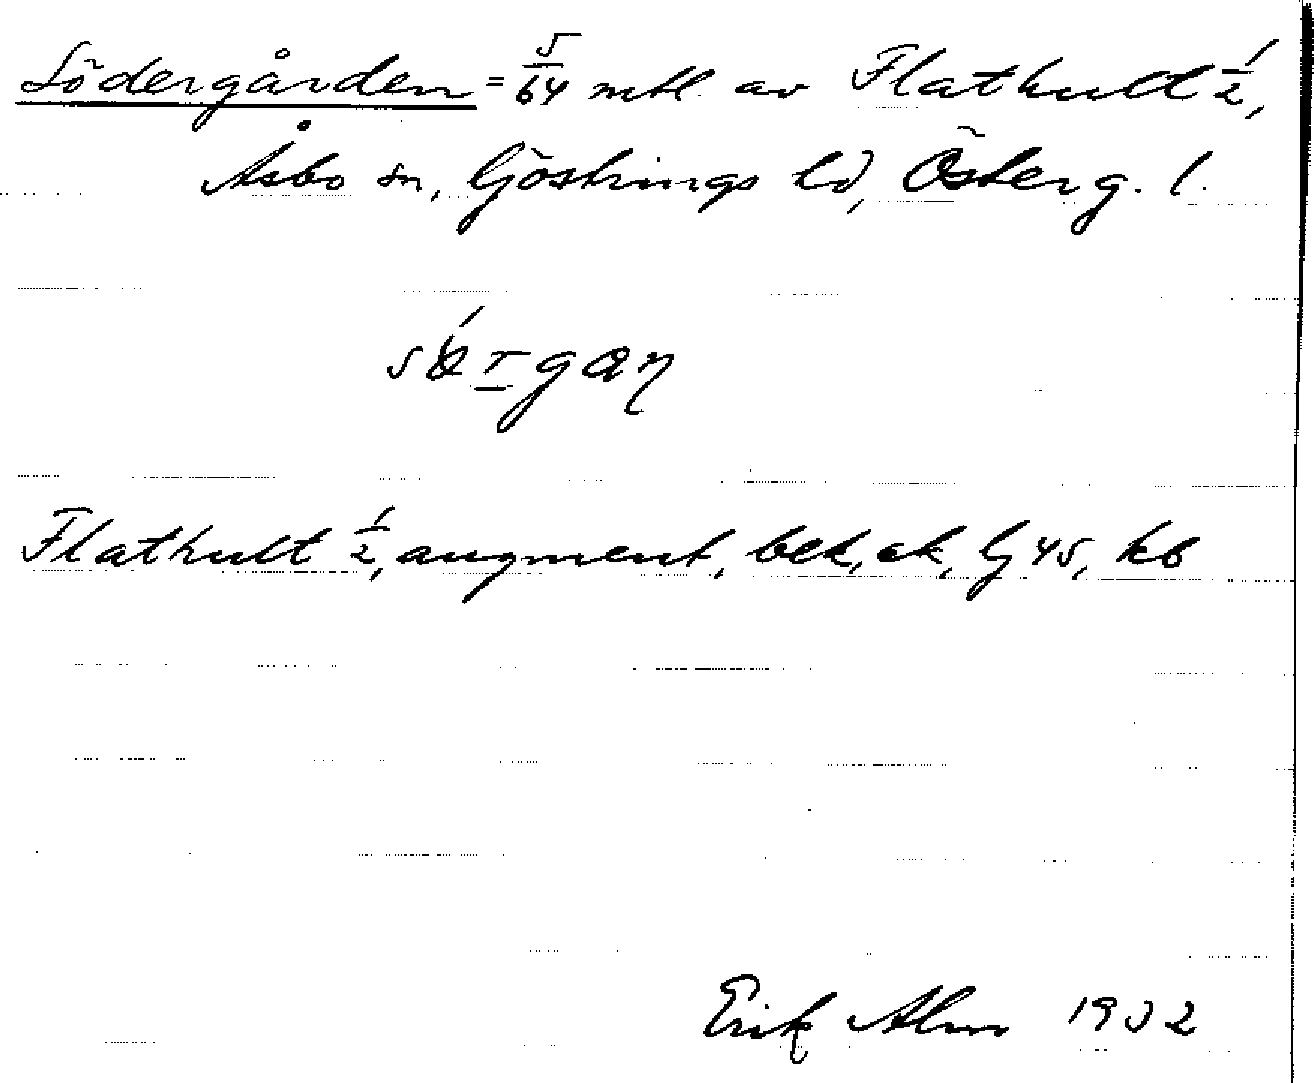 Södergården = 5/64 mtl. av Flathult 1/2,
Åsbo sn, Göstrings hd, Österg. l.
Flathult 1/2, augment, bek, ek, Gj 45, kb
Erik Alm 1932